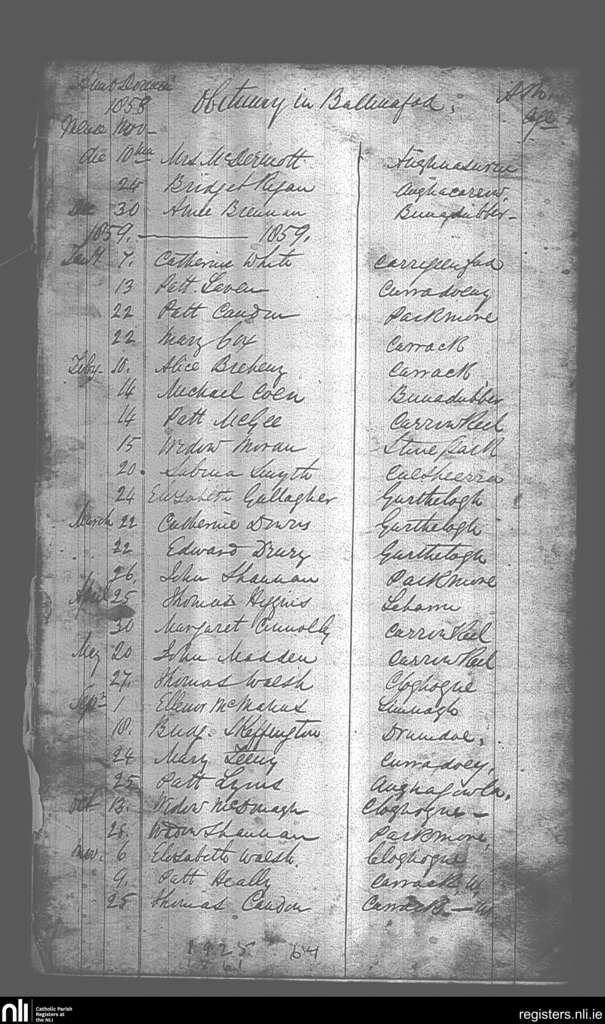 Anno Domini
1858 Obituary in Ballinafad.
Mense Nov
die 10th Mrs McDermott
24 Bridget Regan Aughacarew
Dec 30 Anne Brennan Bunadubber
1859. 1859.
Jany 7. Catherine White Carrigeenfad
13 Patt Laven Curradoeny
22 Patt Candon Parkmore
22 Mary Cox Carrack
Feby 10. Alice Breheny Carrack
14 Michael Coen Bunadubber
14 Patt McGee Carrow Keel
15 Widow Moran Stone Park
20. Sabina Smyth
24 Elisabeth Gallagher Gurthelogh
March 22 Catherine Downs Gurthelogh
22 Edward Drury Gurthelogh
26. John Shannan Parkmore
April 25 Thomas Higgins
30 Margaret Connolly Carrow Keel
May 20 John Madden Carrow Keel
27. Thomas Walsh Cloghogue
Sept 1 Ellenor McManus
18. Bridg. Skeffington Drumdoe,
24 Mary Feeny Curradoey,
25 Patt Lyons
Oct 13. Widow McDonagh Cloghogue
28. Widow Shannan Parkmore,
Nov. 6 Elisabeth Walsh. Cloghogue
9. Patt Heally Carrack. W
25 Thomas Candon Carrack — W
64
nli Catholic Parish Registers at the NLI
registers.nli.ie